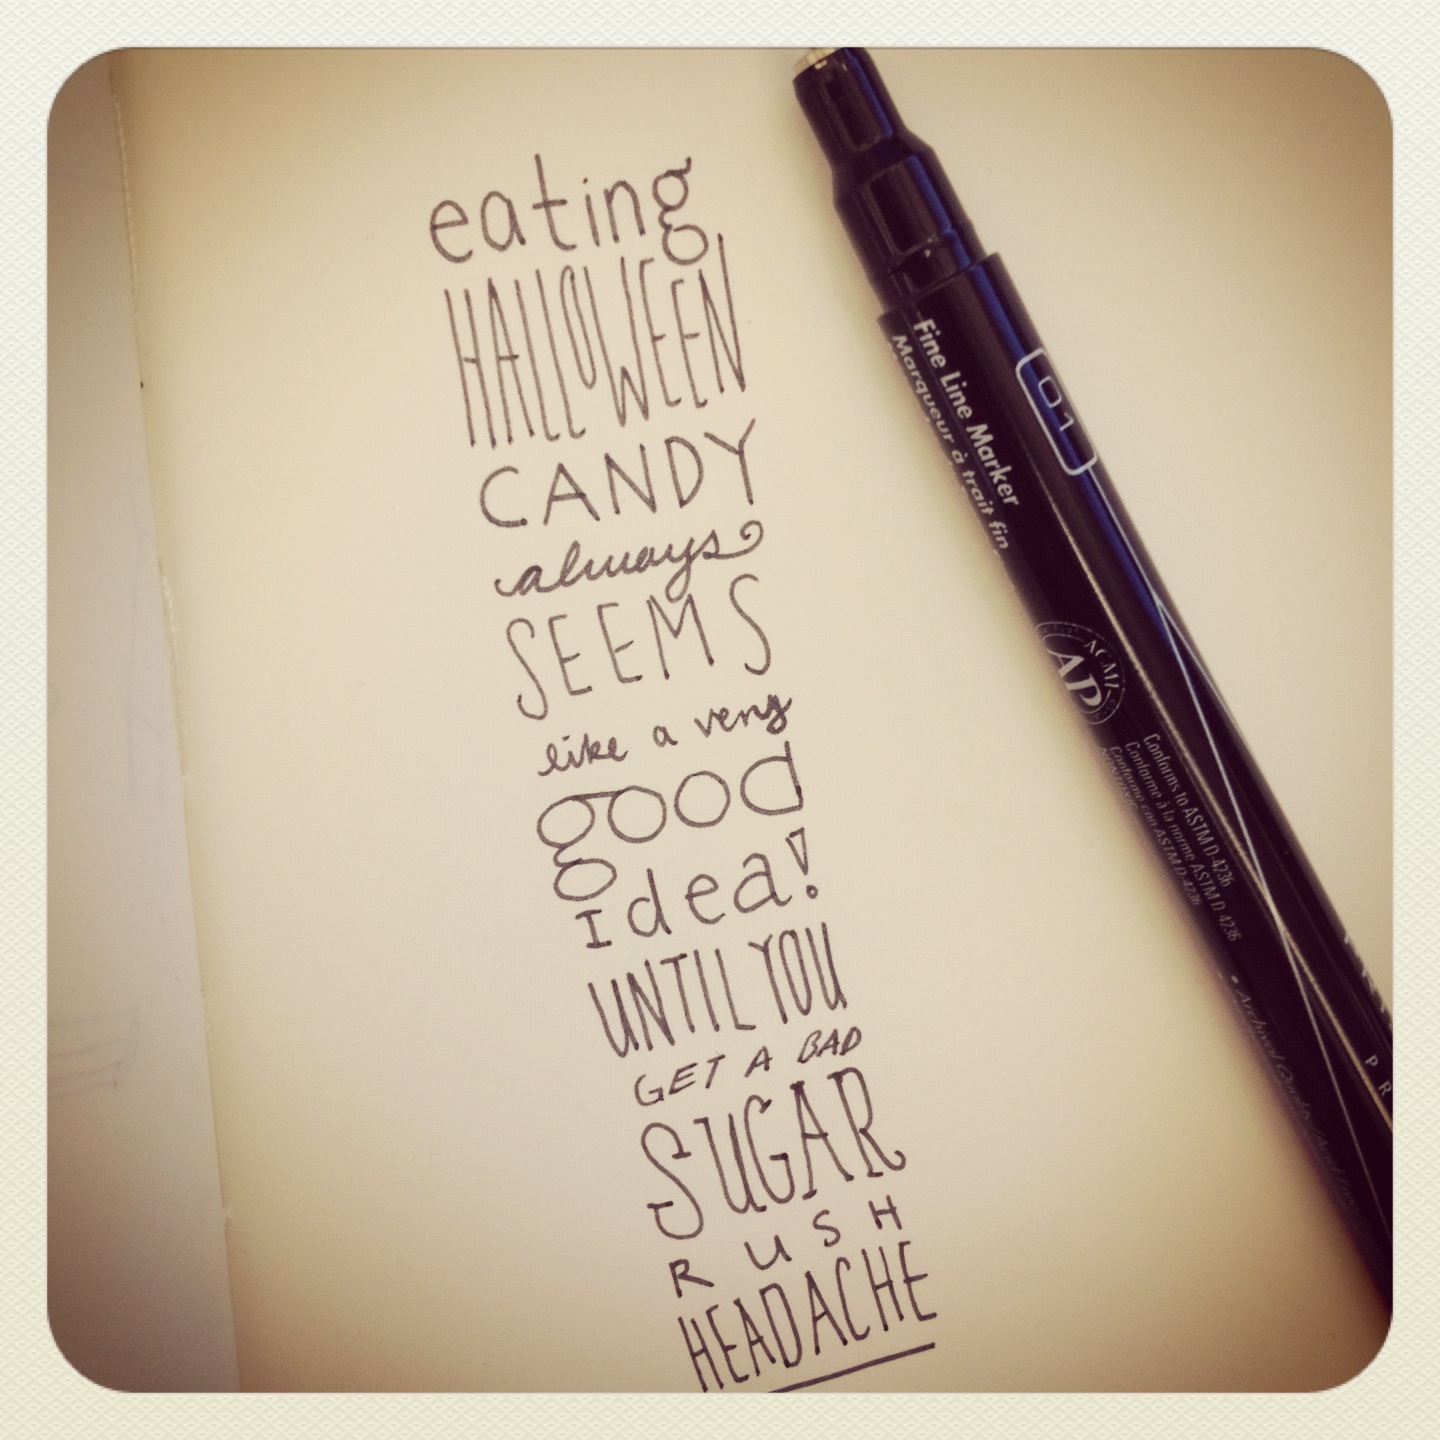 eating
HALLOWEEN
CANDY
always
SEEMS
like a very
good
Idea!
UNTIL YOU
GET A BAD
SUGAR
RUSH
HEADACHE
01
Fine Line Marker
Marqueur à trait fin
ACMI
AP
Conforms to ASTM D-4236
Conforme à la norme ASTM D 4236
Conforme con ASTM D-4236
P R